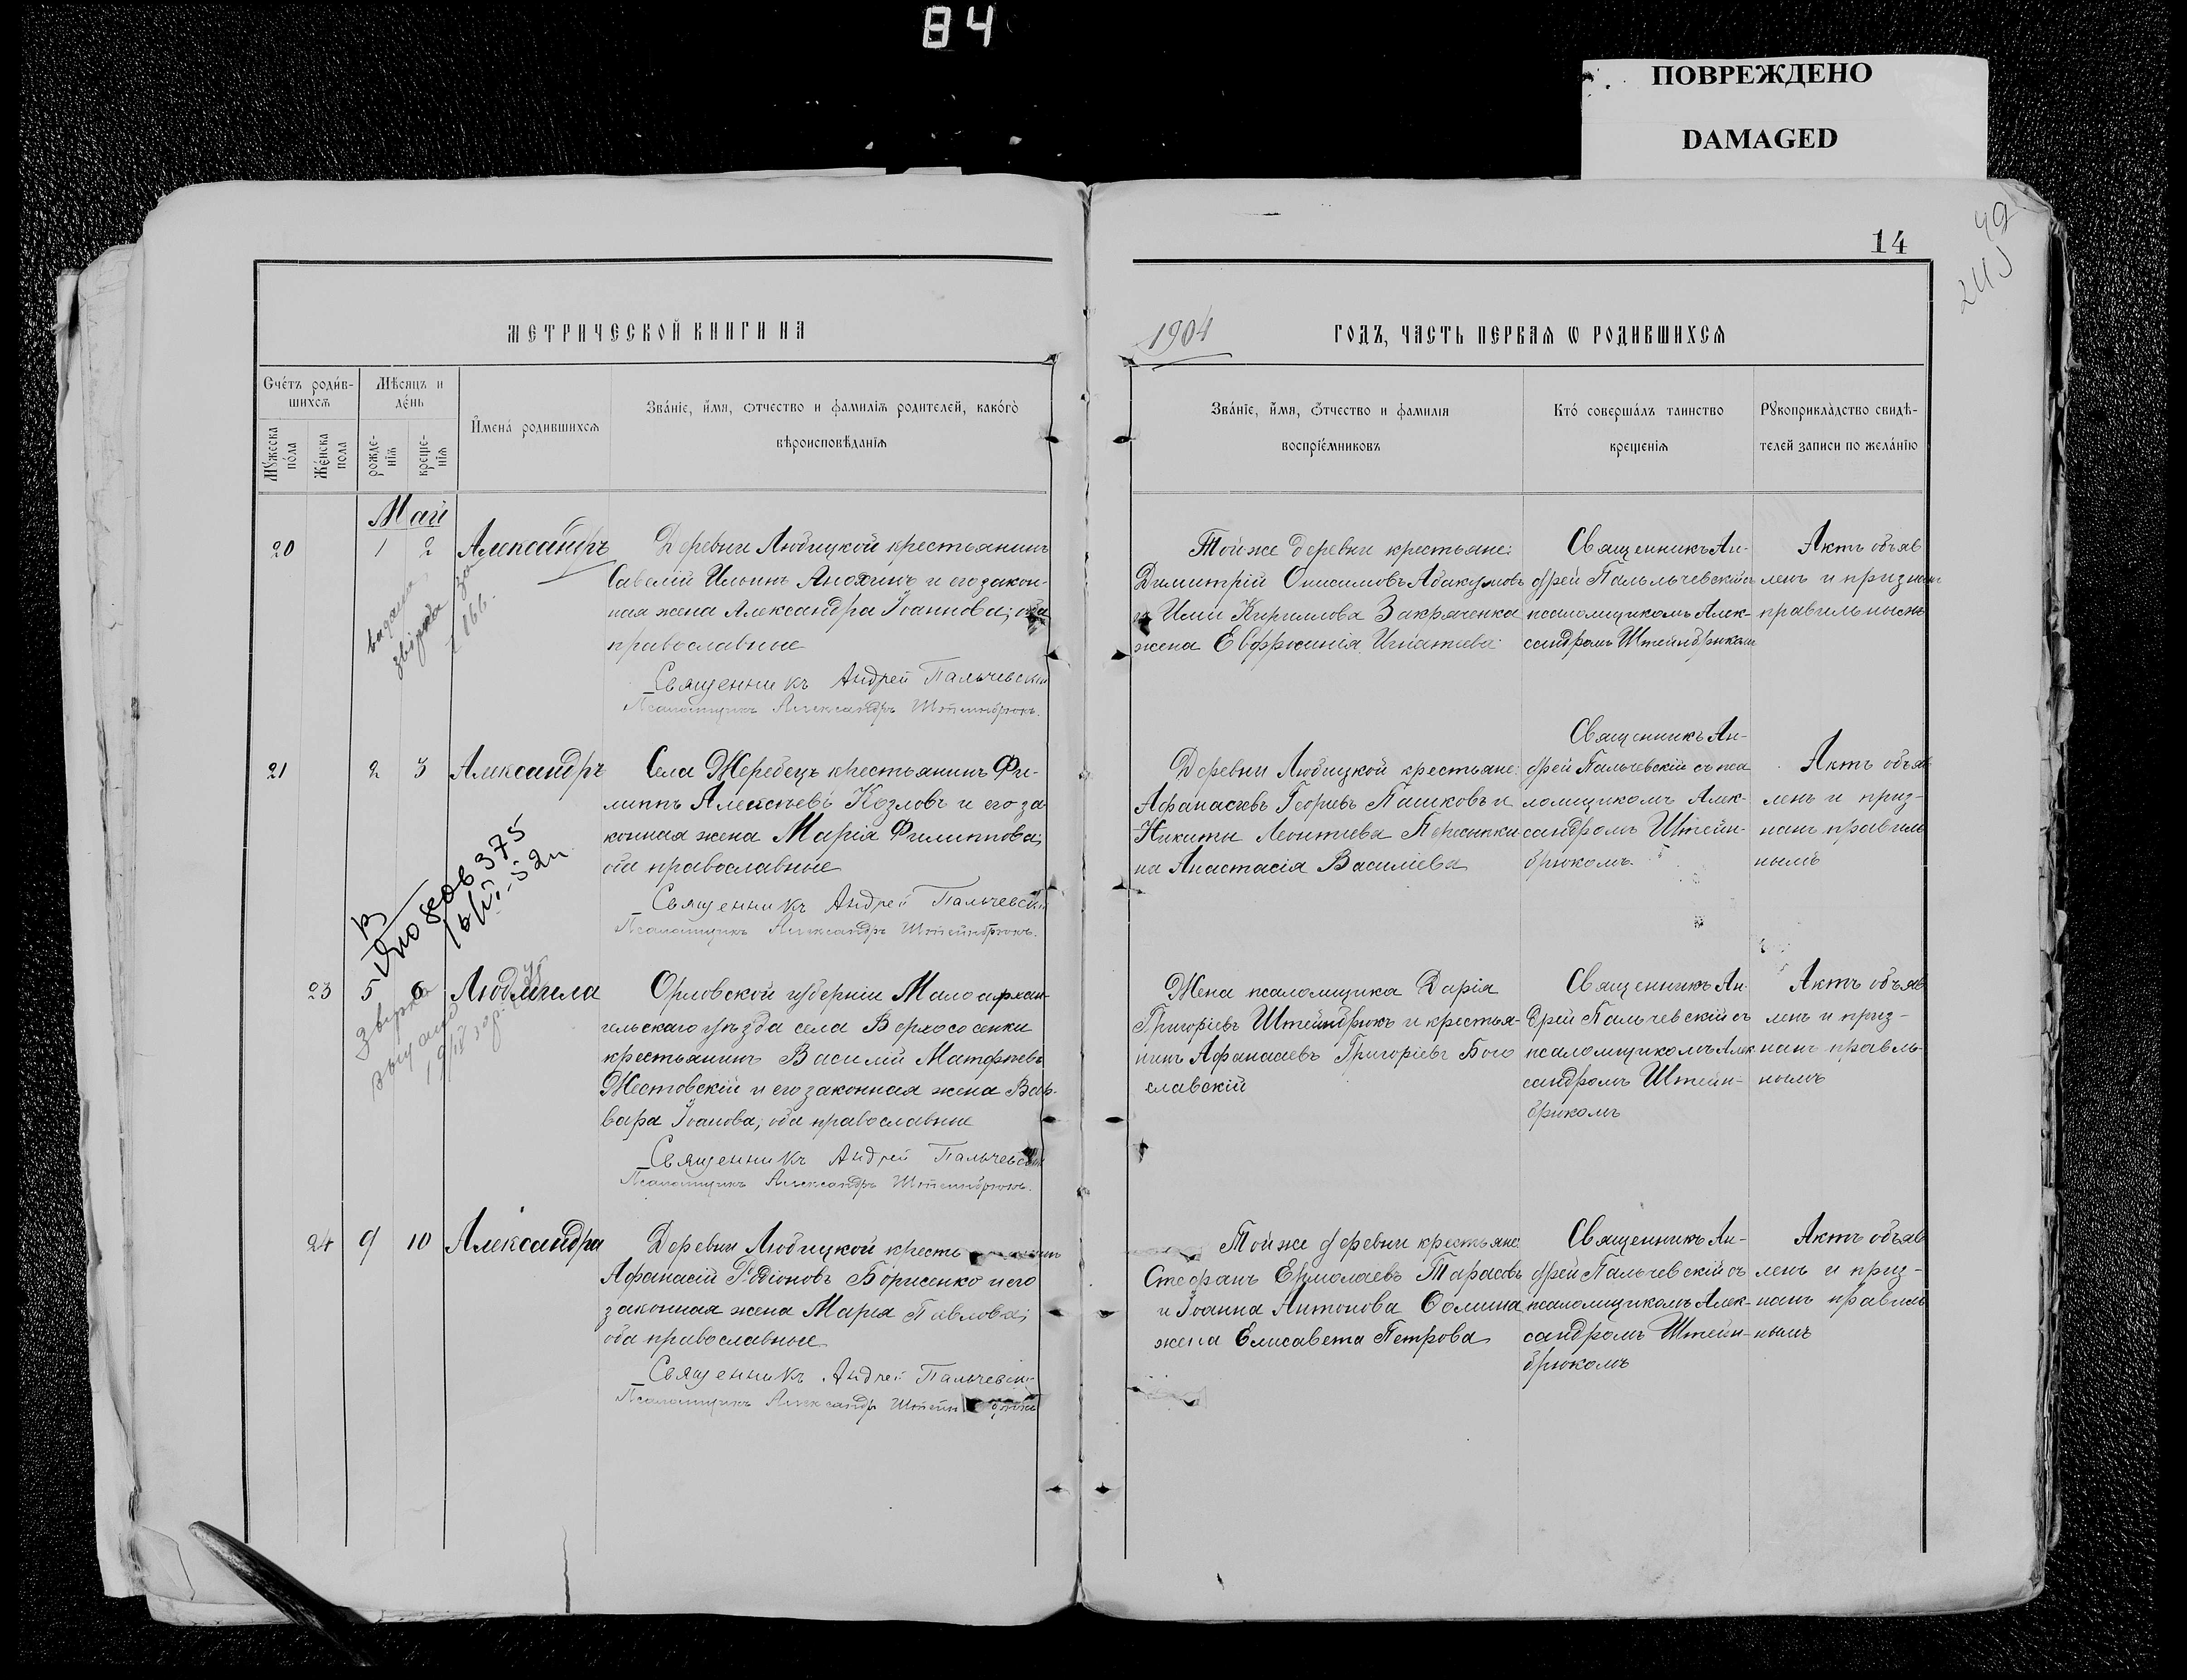 84
ПОВРЕЖДЕНО
DAMAGED
14
49
МЕТРИЧЕСКОЙ КНИГИ НА
1904
ГОДЪ, ЧАСТЬ ПЕРВАЯ Ѡ РОДИВШИХСѦ
Счéтъ родúв-
шихсѧ
Мꙋ́жеска
пóла
Жéнска
пола
Мѣ́сяцъ и
дéнь
рожде-
нїѧ
креще-
нїѧ
И҆менá родившихсѧ
Звáнїе, и҆́мя, ѻтчество и фамилїѧ родителей, какóгѡ
вѣроисповѣданїѧ
Звáнїе, и҆́мя, ѻ҆́тчество и фамилія
воспрїéмниковъ
Ктó совершáлъ таинство
крещенїѧ
Рꙋкоприклàдство свидѣ-
телей записи по желáнїю
Май
20
1
2
Александръ
Деревни Любицкой крестьянинъ
Савелій Ильинъ Анохинъ и его закон-
ная жена Александра Іоаннова; оба
православные
Священникъ Андрей Пальчевскій
Псаломщикъ Александръ Штейнбрюкъ.
Той же деревни крестьяне:
Димитрій Онисимовъ Абакумовъ
и Ильи Кириллова Закряченка
жена Евфросинія Игнатіева
Священникъ Ан-
дрей Пальчевскій съ
псаломщикомъ Алек-
сандромъ Штейнбрюкомъ
Актъ объяв
ленъ и признанъ
правильнымъ
21
2
3
Александръ
Села Жеребецъ крестьянинъ Фи-
липпъ Алексѣевъ Козловъ и его за-
конная жена Марія Филиппова;
оба православные
Священникъ Андрей Пальчевскій
Псаломщикъ Александръ Штейнбрюкъ.
Деревни Любицкой крестьяне:
Афанасіевъ Георіевъ Пашковъ и
Никиты Леонтіева
на Анастасія Василіева
Священникъ Ан-
дрей Пальчевскій съ пса
ломщикомъ Алек-
сандромъ Штейн-
брюкомъ.
Актъ объяв
ленъ и приз-
нанъ правиль
нымъ
375
23
5
6
Людмила
Орловской губерніи Малоархан-
гельскаго уѣзда села Верхососенки
крестьянинъ Василій Матфѣевъ
Жестовскій и его законная жена Вар-
вара Іоанова; оба православные
Священникъ Андрей Пальчевскій
Псаломщикъ Александръ Штейнбрюкъ.
Жена псаломщика Дарія
Григоріевъ Штейнбрюкъ и крестья-
нинъ Афанасіевъ Григоріевъ Бого
славскій
Священникъ Ан-
дрей Пальчевскій съ
псаломщикомъ Алек
сандромъ Штейн-
брюкомъ
Актъ объяв
ленъ и приз-
нанъ правль-
нымъ
24
9
10
Александра
Деревни Любицкой кресть
Афанасій Родіоновъ Борисенко и его
законная жена Марія Павлова;
оба православные
Священникъ Андрей Пальчевскій
Псаломщикъ Александръ Штейнбрюкъ
Той же деревни крестьяне:
Стефанъ Ермолаевъ Тарасовъ
и Іоанна Антонова Фомина
жена Елисавета Петрова
Священникъ Ан-
дрей Пальчевскій съ
псаломщикомъ Алек-
сандромъ Штейн-
брюкомъ
Актъ объяв
ленъ и приз-
нанъ правиль
нымъ